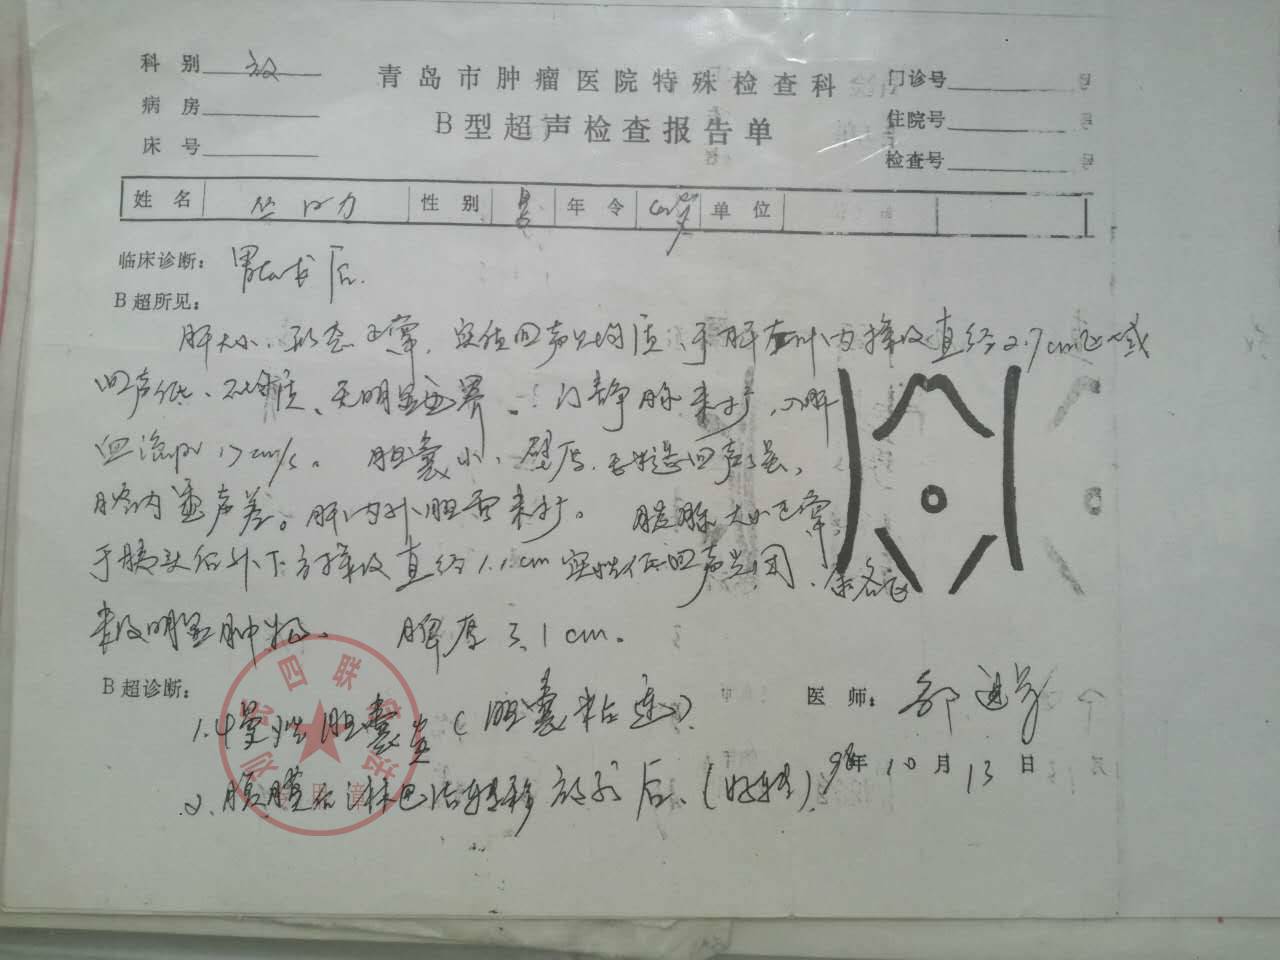 科 别 放
青岛市肿瘤医院特殊检查科
门诊号
病 房
B型超声检查报告单
住院号
床 号
检查号
姓 名 力 性 别 男 年 令 岁 单 位
临床诊断: 胃 术后.
B超所见:
肝大小、形态正常,实质回声 均质、于肝 内探及直经2.7cm 域
回声低、不均质、无明显边界。门静脉未扩,入肝
血流 17cm/s。 胆囊小、壁厚、 回声强、
腔内透声差。肝内外胆管未扩。 胰腺大小正常,
于胰头后外下方探及直经1.1cm实性低回声光团、
未及明显肿物。 脾厚3.1cm。
B超诊断:
1.慢性胆囊炎(胆囊粘连)
医 师:
98年10月13日
2.腹膜后淋巴结转移放疗后、(好转)
四联